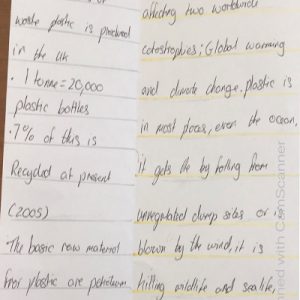 waste plastic is produced
in the UK
• 1 tonne = 20,000
plastic bottles
• 7% of this is
Recycled at present
(2005)
• The basic raw material
for plastic are petroleum
affecting two worldwide
catastrophies; Global warming
and climate change. plastic is
in most places, even the ocean,
it gets the by falling from
unregulated dump sites or is
blown by the wind, it is
killing wildlife and sealife,
ned with CamScanner